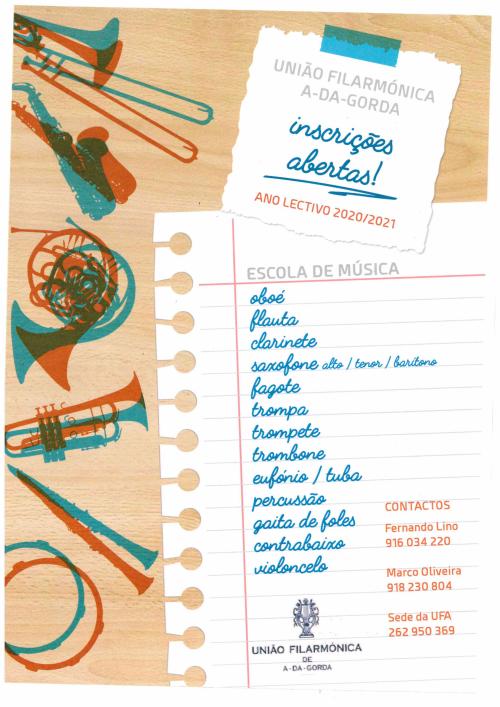 UNIÃO FILARMÓNICA
A-DA-GORDA
inscrições
abertas!
ANO LECTIVO 2020/2021
ESCOLA DE MÚSICA
oboé
flauta
clarinete
saxofone alto / tenor / barítono
fagote
trompa
trompete
trombone
eufónio / tuba
percussão
gaita de foles
contrabaixo
violoncelo
CONTACTOS
Fernando Lino
916 034 220
Marco Oliveira
918 230 804
Sede da UFA
262 950 369
UNIÃO FILARMÓNICA
DE
A-DA-GORDA